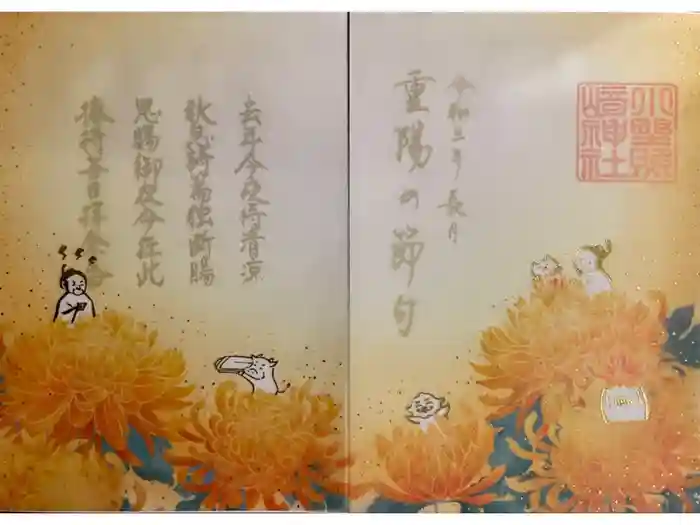 小野照
崎神社
令和三年 長月
重陽の節句
去年今夜待清涼
秋思詩篇独断腸
恩賜御衣今在此
捧持毎日拝余香